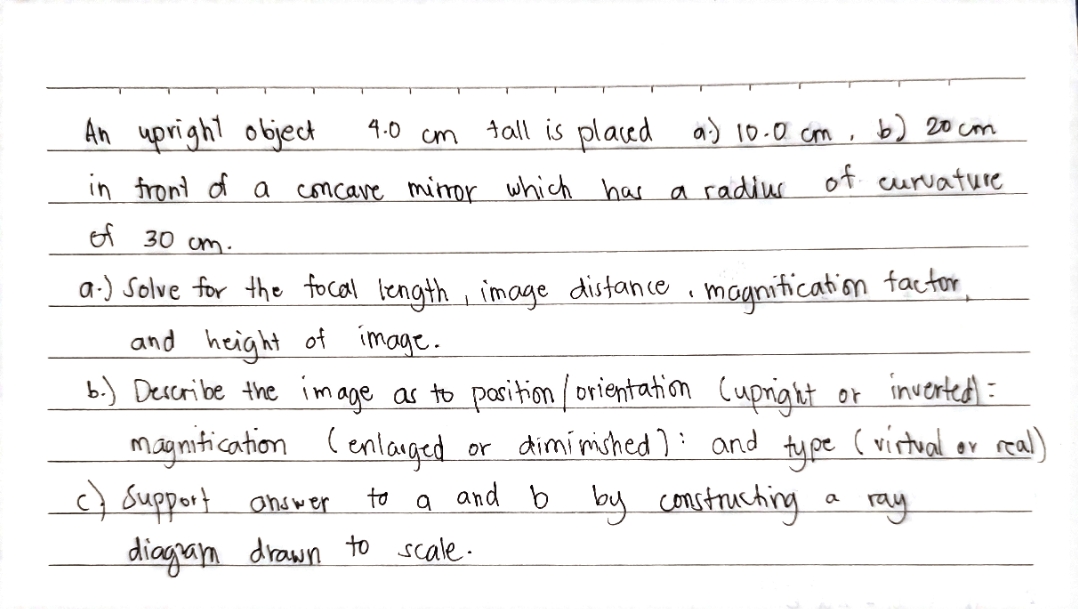 An upright object 4.0 cm tall is placed a.) 10.0 cm, b.) 20 cm
in front of a concave mirror which has a radius of curvature
of 30 cm.
a.) Solve for the focal length, image distance, magnification factor,
and height of image.
b.) Describe the image as to position/orientation (upright or inverted);
magnification (enlarged or dimimished); and type (virtual or real)
c.) Support answer to a and b by constructing a ray
diagram drawn to scale.